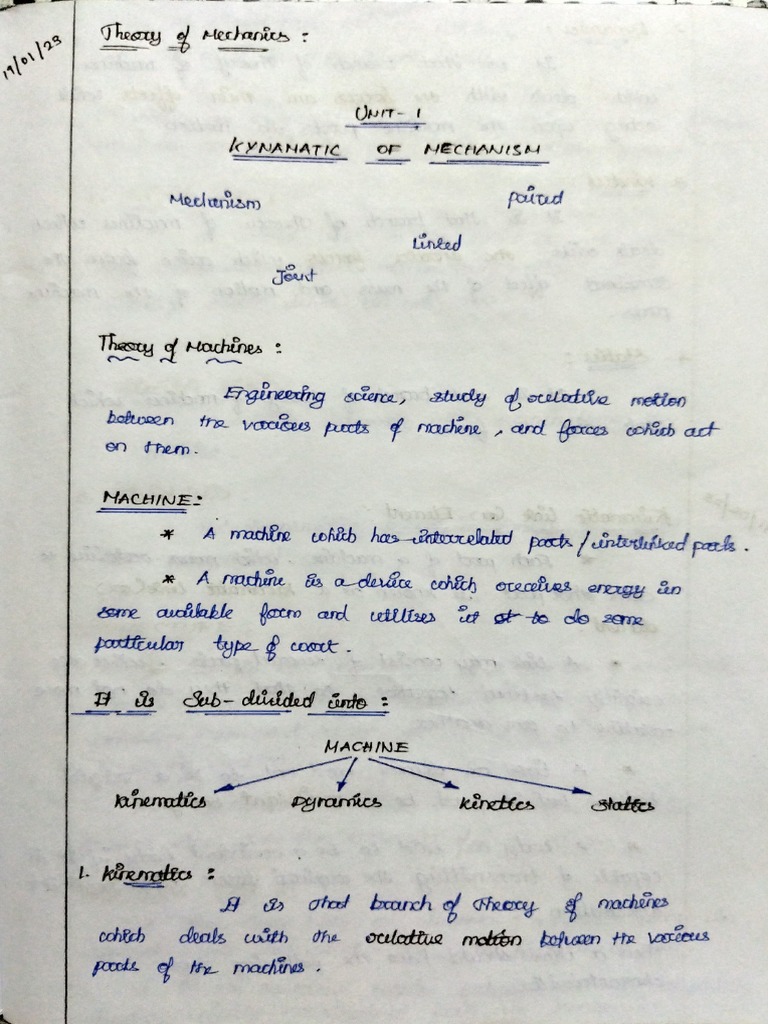 19/01/23
Theory of Mechanics :
UNIT - 1
KYNAMATIC OF MECHANISM
Mechanism Paired
Linked
Joint
Theory of Machines :
Engineering science, study of relative motion
between the various parts of machine, and forces which act
on them.
MACHINE:
* A machine which has interrelated parts / interlinked parts.
* A machine is a device which receives energy in
some available form and utilises it to do some
particular type of work.
It is Sub-divided into :
MACHINE
Kinematics Dynamics Kinetics Statics
1. Kinematics :
It is that branch of Theory of machines
which deals with the relative motion between the various
parts of the machines.